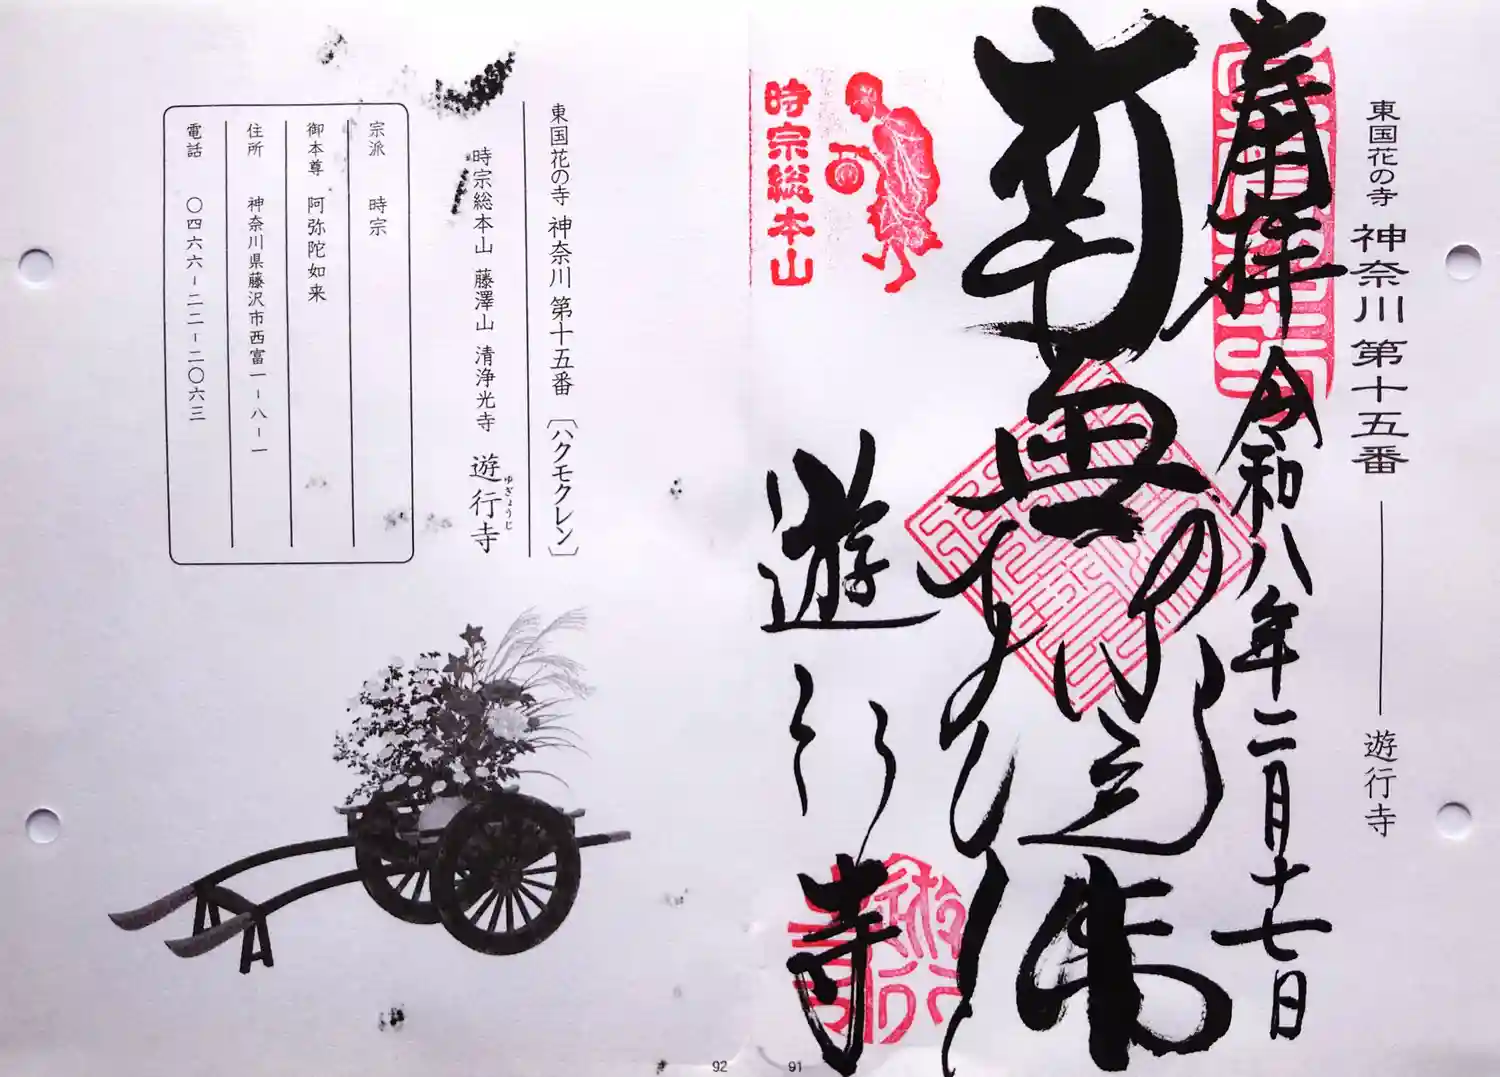 東国花の寺 神奈川 第十五番 ── 遊行寺
奉拝 令和八年二月十七日
南無
遊行寺
時宗総本山
91
東国花の寺 神奈川 第十五番 〔ハクモクレン〕
時宗総本山 藤澤山 清浄光寺 遊行寺
ゆぎょうじ
宗派 時宗
御本尊 阿弥陀如来
住所 神奈川県藤沢市西富一-八-一
電話 〇四六六-二二-二〇六三
92